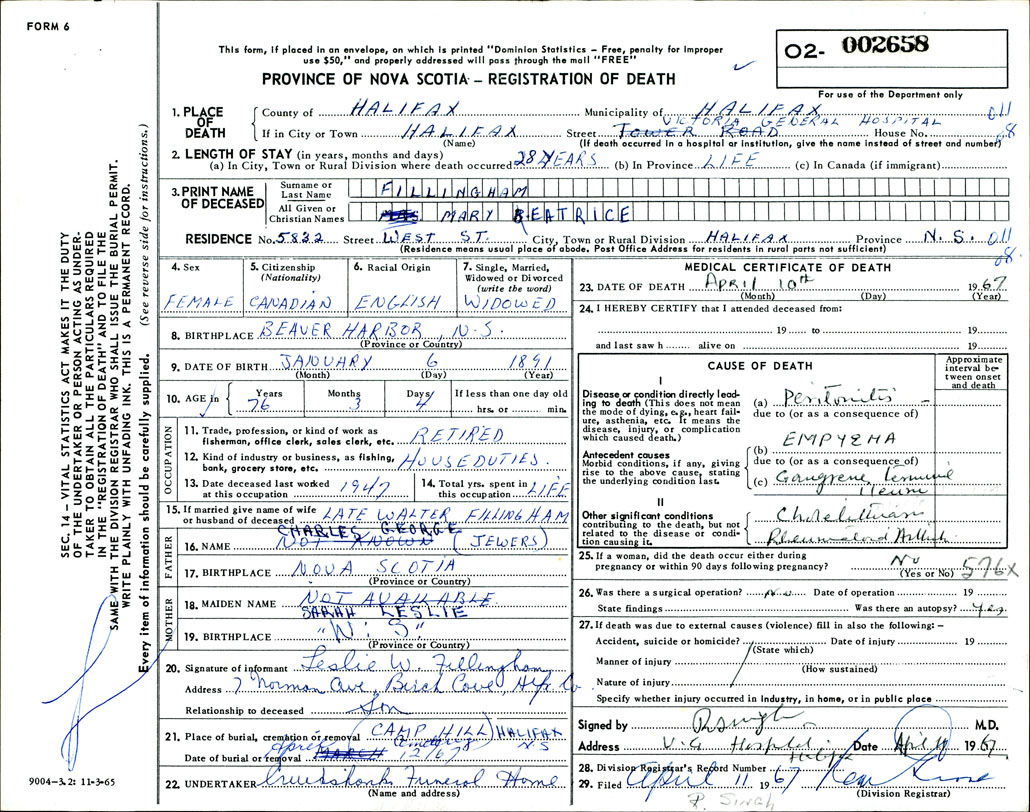 FORM 6
This form, if placed in an envelope, on which is printed "Dominion Statistics – Free, penalty for improper
use $50," and properly addressed will pass through the mail "FREE"
PROVINCE OF NOVA SCOTIA – REGISTRATION OF DEATH
O2- 002658
For use of the Department only
1. PLACE OF DEATH
County of HALIFAX Municipality of HALIFAX 011
If in City or Town HALIFAX Street TOWER ROAD VICTORIA GENERAL HOSPITAL House No. 08
(Name) (If death occurred in a hospital or institution, give the name instead of street and number)
2. LENGTH OF STAY (in years, months and days)
(a) In City, Town or Rural Division where death occurred 28 YEARS (b) In Province LIFE (c) In Canada (if immigrant)
3. PRINT NAME OF DECEASED
Surname or Last Name FILLINGHAM
All Given or Christian Names MARY BEATRICE
RESIDENCE No. 5832 Street WEST ST. City, Town or Rural Division HALIFAX Province N.S. 011
(Residence means usual place of abode. Post Office Address for residents in rural parts not sufficient) 08.
4. Sex FEMALE
5. Citizenship (Nationality) CANADIAN
6. Racial Origin ENGLISH
7. Single, Married, Widowed or Divorced (write the word) WIDOWED
8. BIRTHPLACE BEAVER HARBOR, N.S.
(Province or Country)
9. DATE OF BIRTH JANUARY 6 1891
(Month) (Day) (Year)
10. AGE in Years 76 Months 3 Days 4 If less than one day old
hrs. or min.
OCCUPATION
11. Trade, profession, or kind of work as fisherman, office clerk, sales clerk, etc. RETIRED
12. Kind of industry or business, as fishing, bank, grocery store, etc. HOUSEDUTIES.
13. Date deceased last worked at this occupation 1947
14. Total yrs. spent in this occupation LIFE
15. If married give name of wife or husband of deceased LATE WALTER FILLINGHAM
FATHER
CHARLES GEORGE
16. NAME NOT KNOWN (JEWERS)
17. BIRTHPLACE NOVA SCOTIA
(Province or Country)
MOTHER
18. MAIDEN NAME NOT AVAILABLE
SARAH LESLIE
19. BIRTHPLACE "N.S"
(Province or Country)
20. Signature of informant Leslie W. Fillingham
Address 7 Norman Ave, Birch Cove, Hfx Co
Relationship to deceased Son
21. Place of burial, cremation or removal CAMP HILL Cemetery HALIFAX N.S
Date of burial or removal April MARCH 12/67
22. UNDERTAKER Cruikshanks Funeral Home
(Name and address)
MEDICAL CERTIFICATE OF DEATH
23. DATE OF DEATH April 10th 1967
(Month) (Day) (Year)
24. I HEREBY CERTIFY that I attended deceased from:
19 to 19
and last saw h alive on 19
CAUSE OF DEATH
Approximate interval between onset and death
I
Disease or condition directly leading to death (This does not mean the mode of dying, e.g., heart failure, asthenia, etc. It means the disease, injury, or complication which caused death.)
(a) Peritonitis
due to (or as a consequence of)
Antecedent causes
Morbid conditions, if any, giving rise to the above cause, stating the underlying condition last.
(b) EMPYEMA
due to (or as a consequence of)
(c) Gangrene Terminal Ileum
II
Other significant conditions
contributing to the death, but not related to the disease or condition causing it.
Rheumatoid
25. If a woman, did the death occur either during pregnancy or within 90 days following pregnancy? No
(Yes or No) 576X
26. Was there a surgical operation? No Date of operation 19
State findings Was there an autopsy? Yes
27. If death was due to external causes (violence) fill in also the following: –
Accident, suicide or homicide? Date of injury 19
(State which)
Manner of injury
(How sustained)
Nature of injury
Specify whether injury occurred in Industry, in home, or in public place
Signed by R Singh M.D.
Address V.G. Hospital Halifax Date April 11 1967
28. Division Registrar's Record Number
29. Filed April 11 1967
(Division Registrar)
R. SINGH
SEC. 14 – VITAL STATISTICS ACT MAKES IT THE DUTY
OF THE UNDERTAKER OR PERSON ACTING AS UNDER-
TAKER TO OBTAIN ALL THE PARTICULARS REQUIRED
IN THE "REGISTRATION OF DEATH" AND TO FILE THE
SAME WITH THE DIVISION REGISTRAR WHO SHALL ISSUE THE BURIAL PERMIT.
WRITE PLAINLY WITH UNFADING INK. THIS IS A PERMANENT RECORD.
Every item of information should be carefully supplied. (See reverse side for instructions.)
9004-3.2: 11-3-65